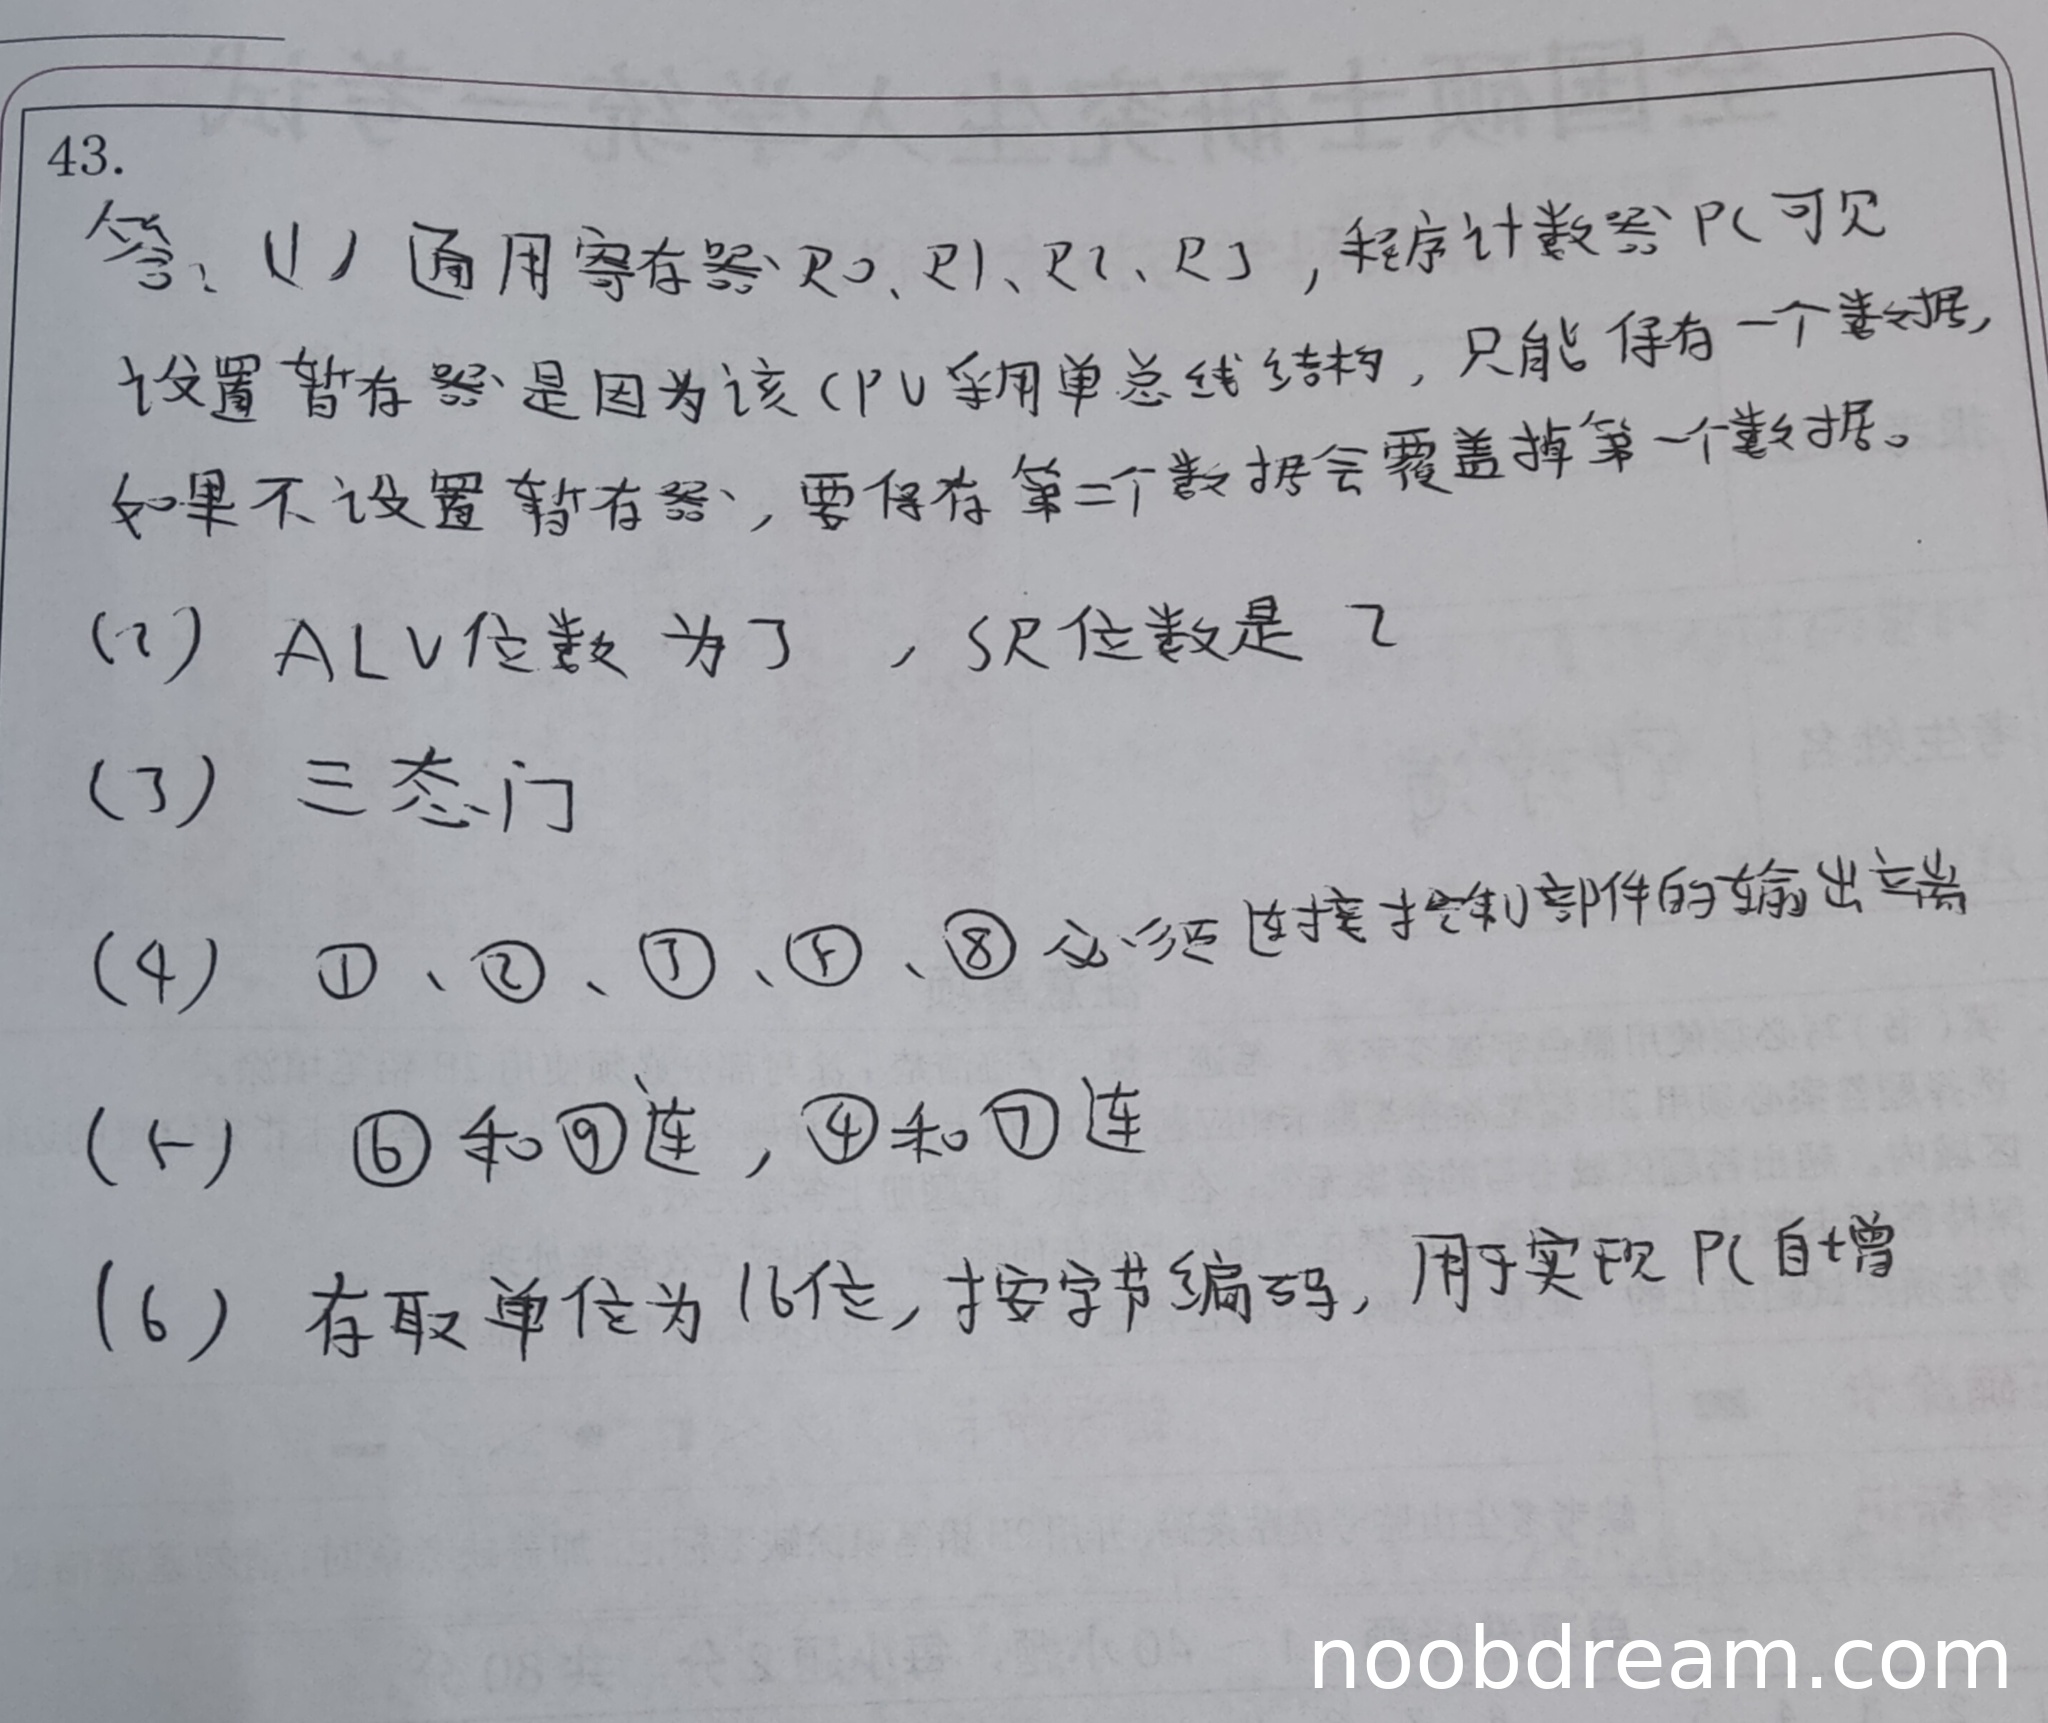 43.
答: (1) 通用寄存器 R0、R1、R2、R3, 程序计数器 PC 可见
设置暂存器是因为该CPU采用单总线结构, 只能保存一个数据,
如果不设置暂存器, 要保存第二个数据会覆盖掉第一个数据。
(2) ALU位数为3 , SR位数是 2
(3) 三态门
(4) ①、②、③、⑤、⑧必须连接控制部件的输出端
(5) ⑥和⑨连, ④和⑦连
(6) 存取单位为16位, 按字节编码, 用于实现 PC 自增
noobdream.com